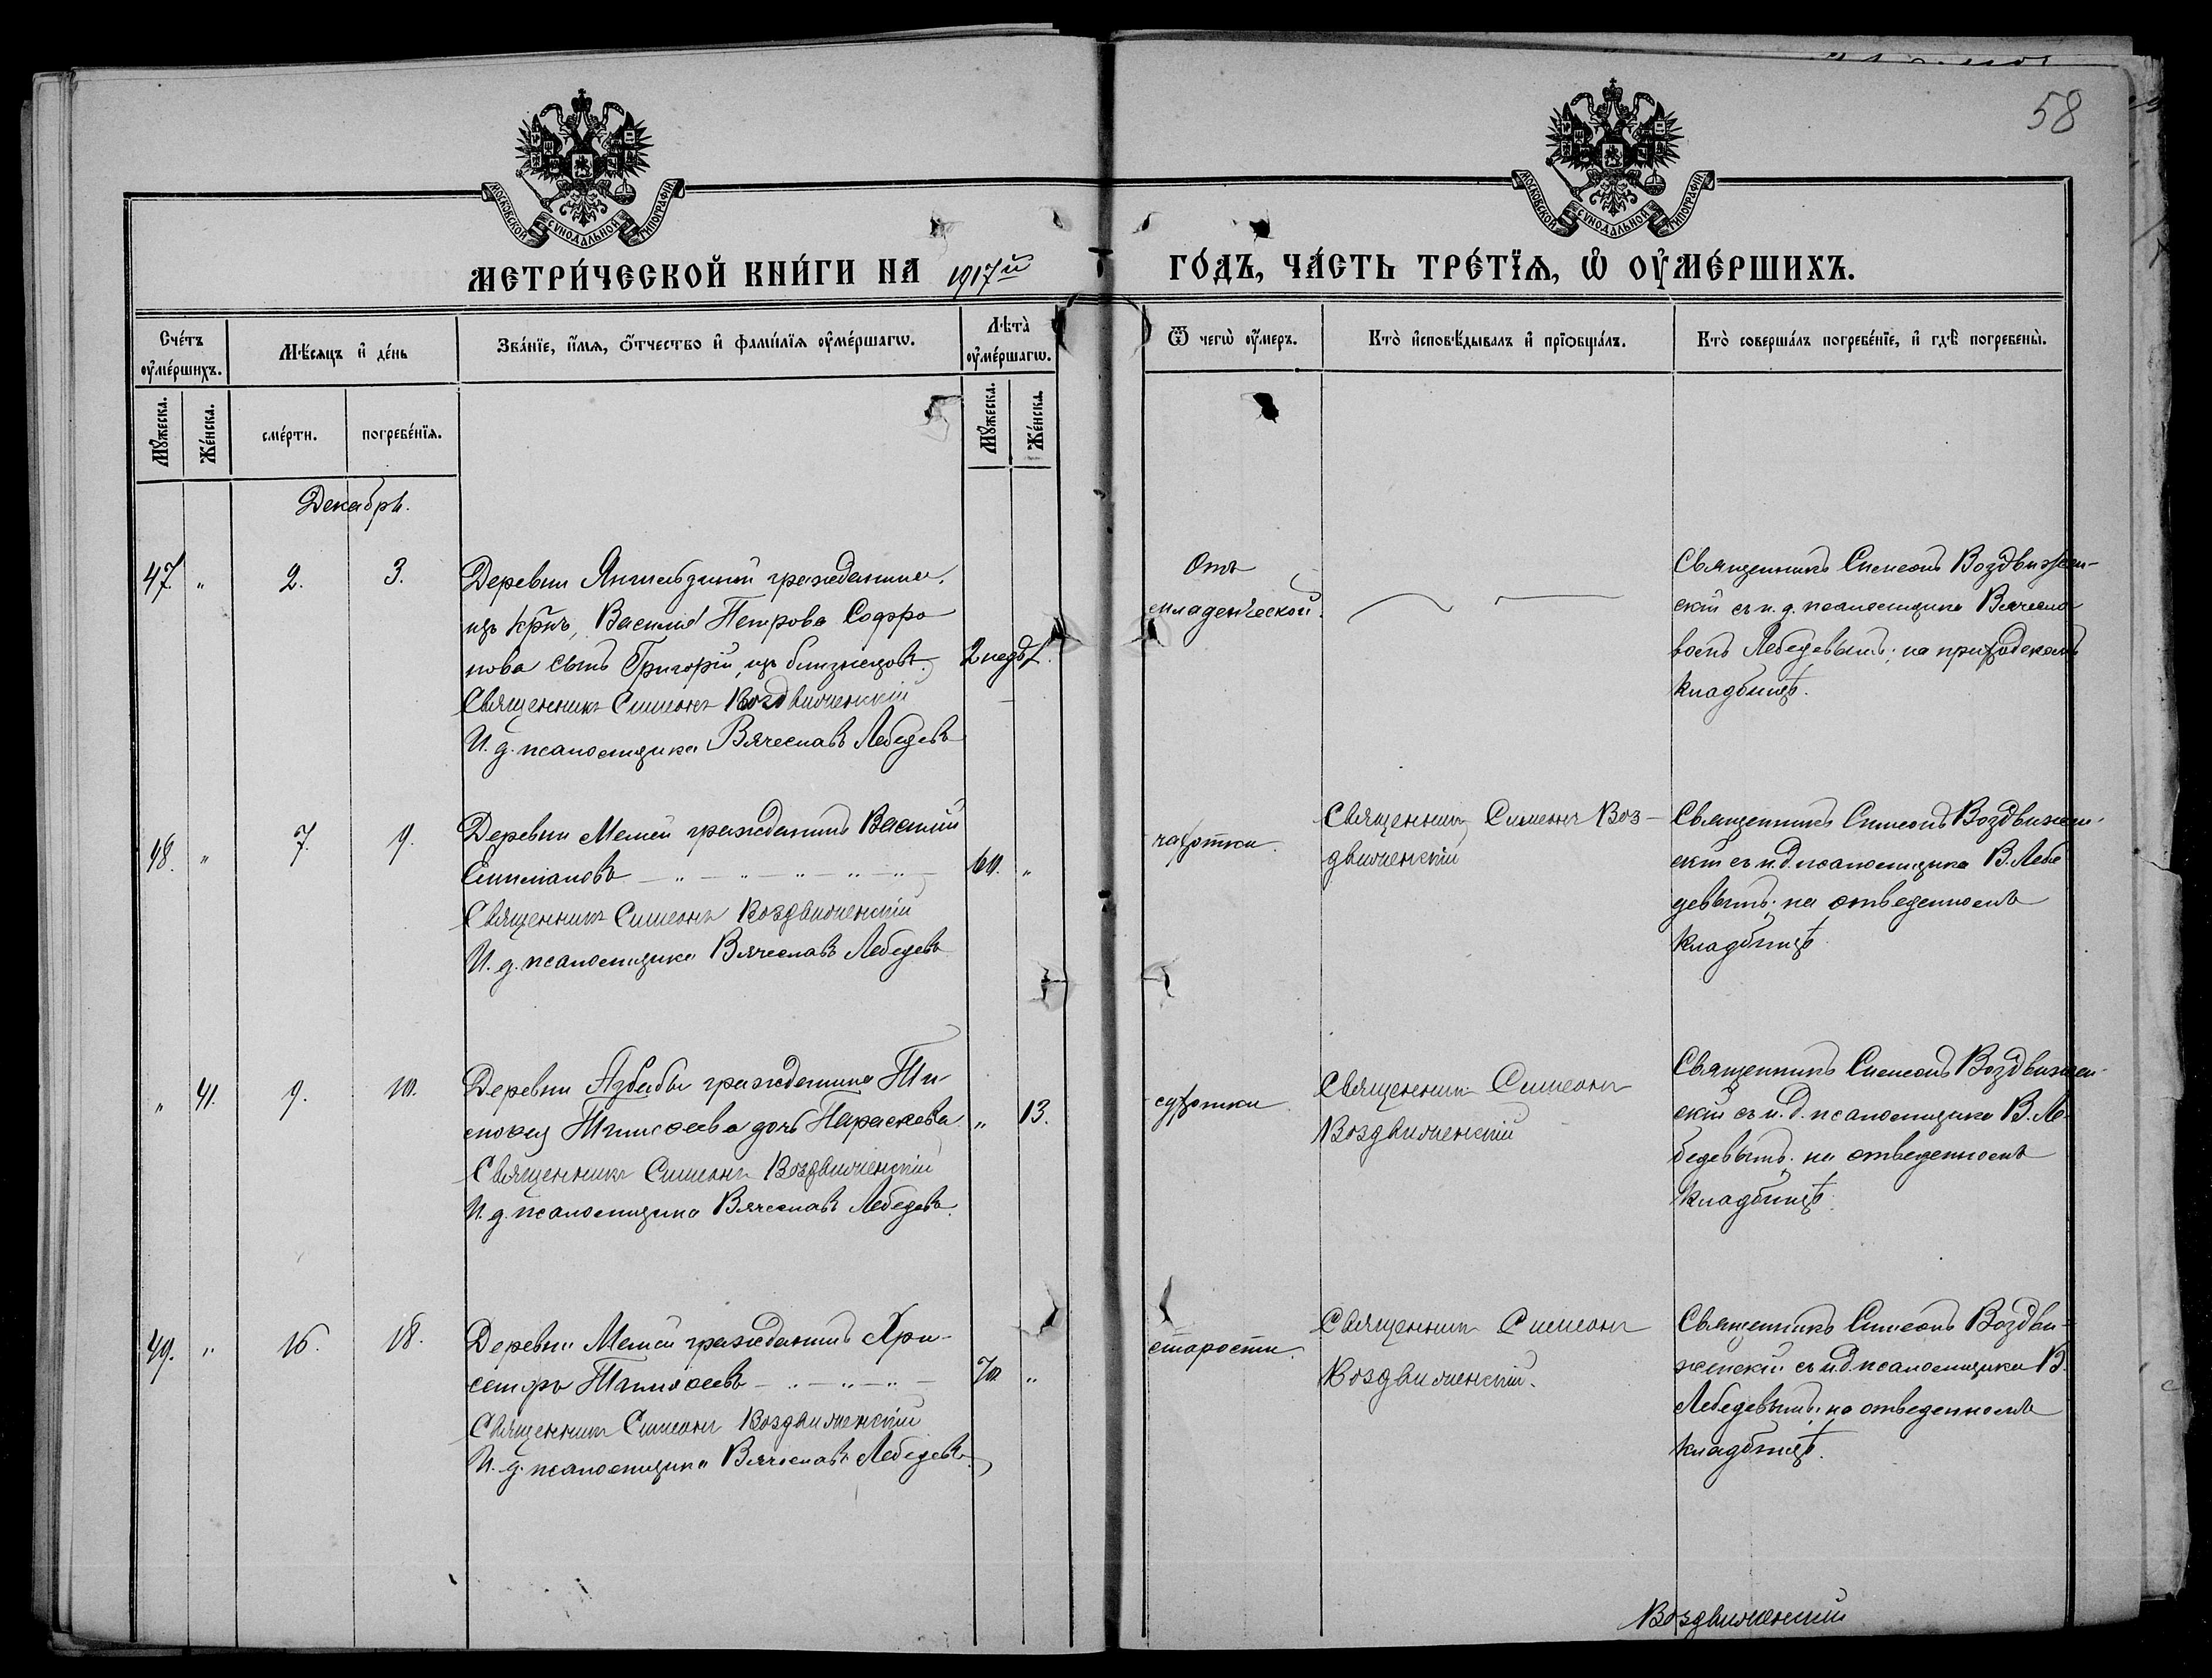 58
МОСКОВСКОЙ СѴНОДАЛЬНОЙ ТИПОГРАФІИ.
МОСКОВСКОЙ СѴНОДАЛЬНОЙ ТИПОГРАФІИ.
МЕТРИ́ЧЕСКОЙ КНИ́ГИ НА 1917й
ГО́ДЪ, ЧА́СТЬ ТРЕ́ТЇѦ, Ѽ ОУ҆МЕ́РШИХЪ.
Сче́тъ оу҆ме́ршихъ.
Мѣ́сяцъ и҆ де́нь
Зва́нїе, и҆́мя, ѻ҆́тчество и҆ фами́лїя оу҆ме́ршагѡ.
Лѣта̀ оу҆ме́ршагѡ.
Ѿ чегѡ̀ оу҆́меръ.
Кто̀ и҆сповѣ́дывалъ и҆ прїѡбща́лъ.
Кто̀ соверша́лъ погребе́нїе, и҆ гдѣ̀ погребены̀.
Мꙋ́жеска.
Же́нска.
сме́рти.
погребе́нїя.
Мꙋ́жеска.
Же́нска.
Декабрь.
47. "
2.
3.
Деревни гражданина,
изъ крнъ, Василія Петрова Софро
нова сынъ Григорій, изъ близнецовъ.
2 недѣл.
Священникъ Симеонъ Воздвиженскій
И. д. псаломщика Вячеславъ Лебедевъ
Отъ
младенческой.
Священникъ Симеонъ Воздвижен-
скій съ и. д. псаломщика Вячесла
вомъ Лебедевымъ; на приходскомъ
кладбищѣ.
48. "
7.
9.
Деревни Мемей гражданинъ Василій
Емилиановъ — " — " — " — " — " —
60. "
Священникъ Симеонъ Воздвиженскій
И. д. псаломщика Вячеславъ Лебедевъ
чахотки.
Священникъ Симеонъ Воз-
движенскій
Священникъ Симеонъ Воздвижен-
скій съ и. д. псаломщика В. Лебе
девымъ; на отведенномъ
кладбищѣ.
" 41.
9.
10.
Деревни Азбабы гражданина Ти-
моѳея Тимоѳеева дочь Параскева
" 13.
Священникъ Симеонъ Воздвиженскій
И. д. псаломщика Вячеславъ Лебедевъ.
сухотки
Священникъ Симеонъ
Воздвиженскій
Священникъ Симеонъ Воздвижен-
скій съ и. д. псаломщика В. Ле-
бедевымъ; на отведенномъ
кладбищѣ.
49. "
16.
18.
Деревни Мемей гражданинъ Хри-
сторъ Тимоѳеевъ — " — " — " —
70. "
Священникъ Симеонъ Воздвиженскій
И. д. псаломщика Вячеславъ Лебедевъ
старости.
Священникъ Симеонъ
Воздвиженскій.
Священникъ Симеонъ Воздви-
женскій съ и. д. псаломщика В.
Лебедевымъ; на отведенномъ
кладбищѣ.
Воздвиженскій